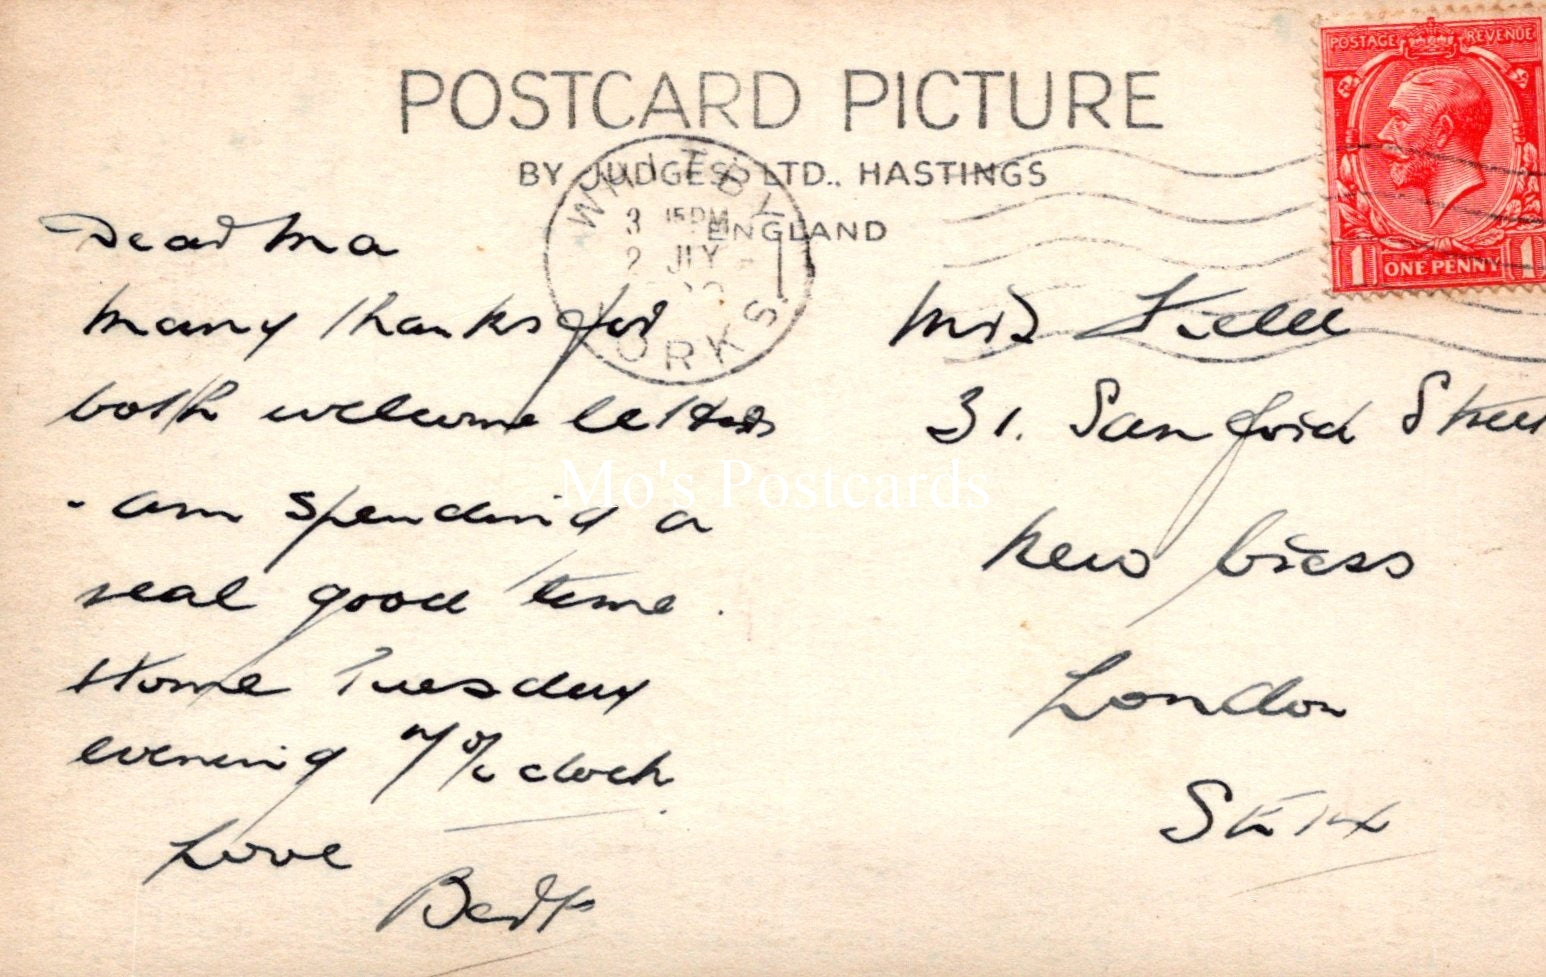 POSTCARD PICTURE
BY JUDGES' LTD., HASTINGS
ENGLAND
WHITBY
3 15PM
2 JLY
YORKS.
POSTAGE REVENUE
1 ONE PENNY 1
Dear Ma
Many thanks for
both welcome letters
- am spending a
real good time.
Home Tuesday
evening 7 o/c clock
Love
Mrs
31. Sanford Street
New Cross
London
SE 14
Mo's Postcards